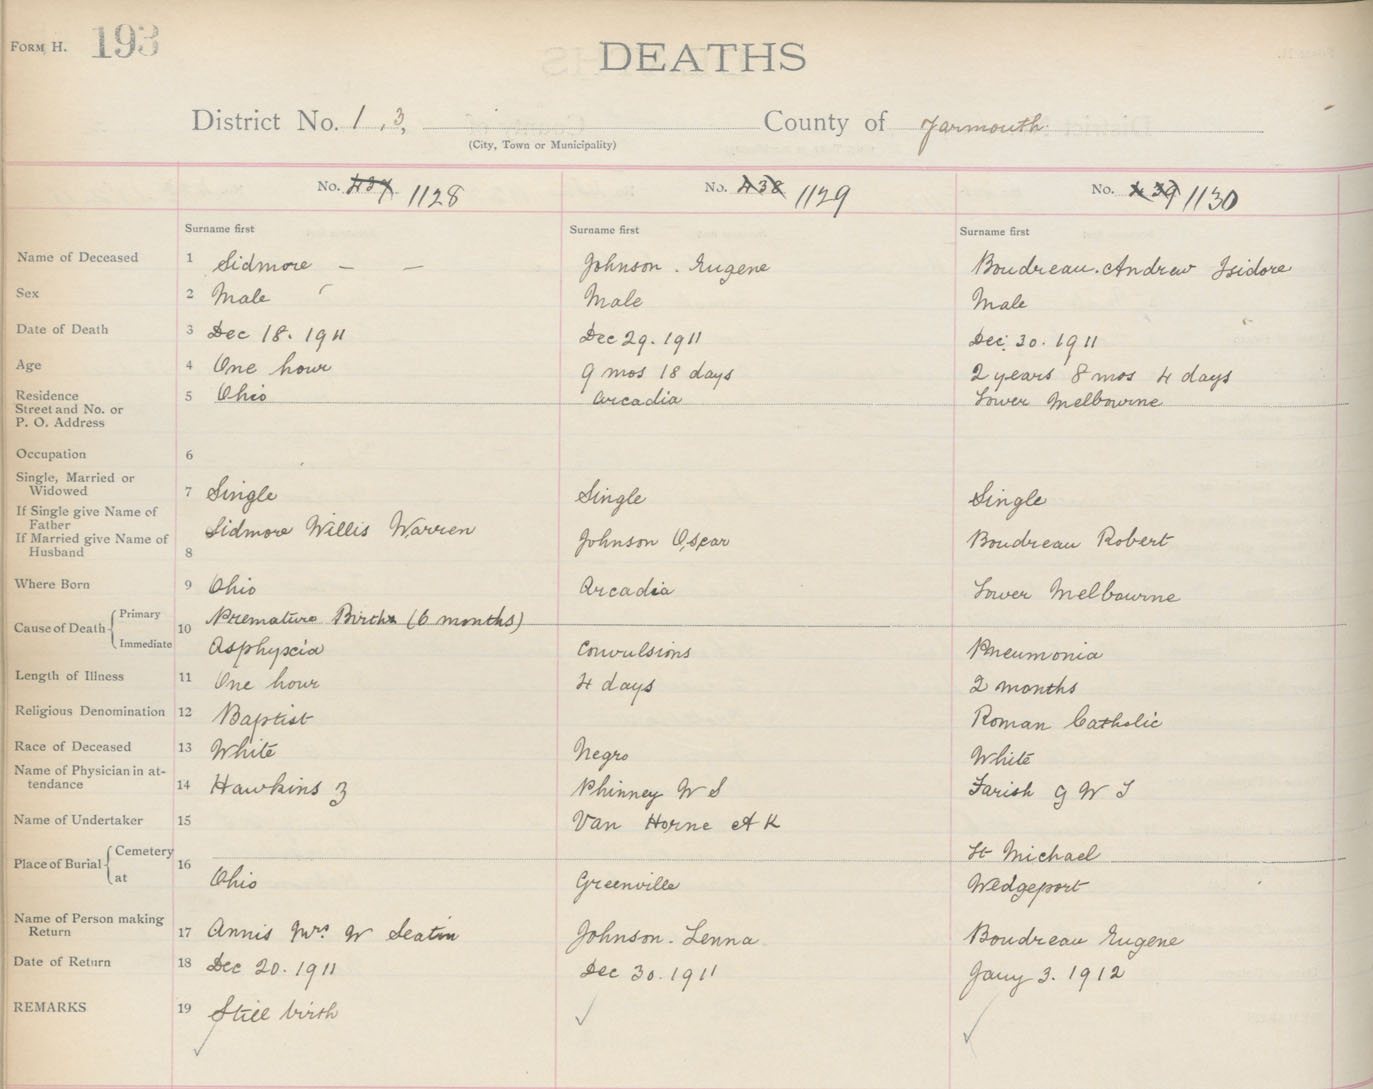 FORM H. 193
DEATHS
District No. 1, 3, County of Yarmouth
(City, Town or Municipality)
No. 437 1128 No. 438 1129 No. 439 1130
Surname first Surname first Surname first
Name of Deceased 1 Sidmore — — Johnson. Eugene Boudreau. Andrew Isidore
Sex 2 Male Male Male
Date of Death 3 Dec 18. 1911 Dec 29. 1911 Dec. 30. 1911
Age 4 One hour 9 mos 18 days 2 years 8 mos 4 days
Residence 5 Ohio Arcadia Lower Melbourne
Street and No. or
P. O. Address
Occupation 6
Single, Married or
Widowed 7 Single Single Single
If Single give Name of
Father Sidmore Willis Warren Johnson Oscar Boudreau Robert
If Married give Name of
Husband 8
Where Born 9 Ohio Arcadia Lower Melbourne
Cause of Death Primary 10 Premature Birth (6 months)
Immediate Asphyxia Convulsions Pneumonia
Length of Illness 11 One hour 4 days 2 months
Religious Denomination 12 Baptist Roman Catholic
Race of Deceased 13 White Negro White
Name of Physician in at-
tendance 14 Hawkins Z Phinney W S Farish G W T
Name of Undertaker 15 Van Horne A K
Place of Burial Cemetery 16 St Michael
at Ohio Greenville Wedgeport
Name of Person making
Return 17 Annis Mrs W Johnson. Lenna Boudreau Eugene
Date of Return 18 Dec 20. 1911 Dec 30. 1911 Jany 3. 1912
REMARKS 19 Still birth